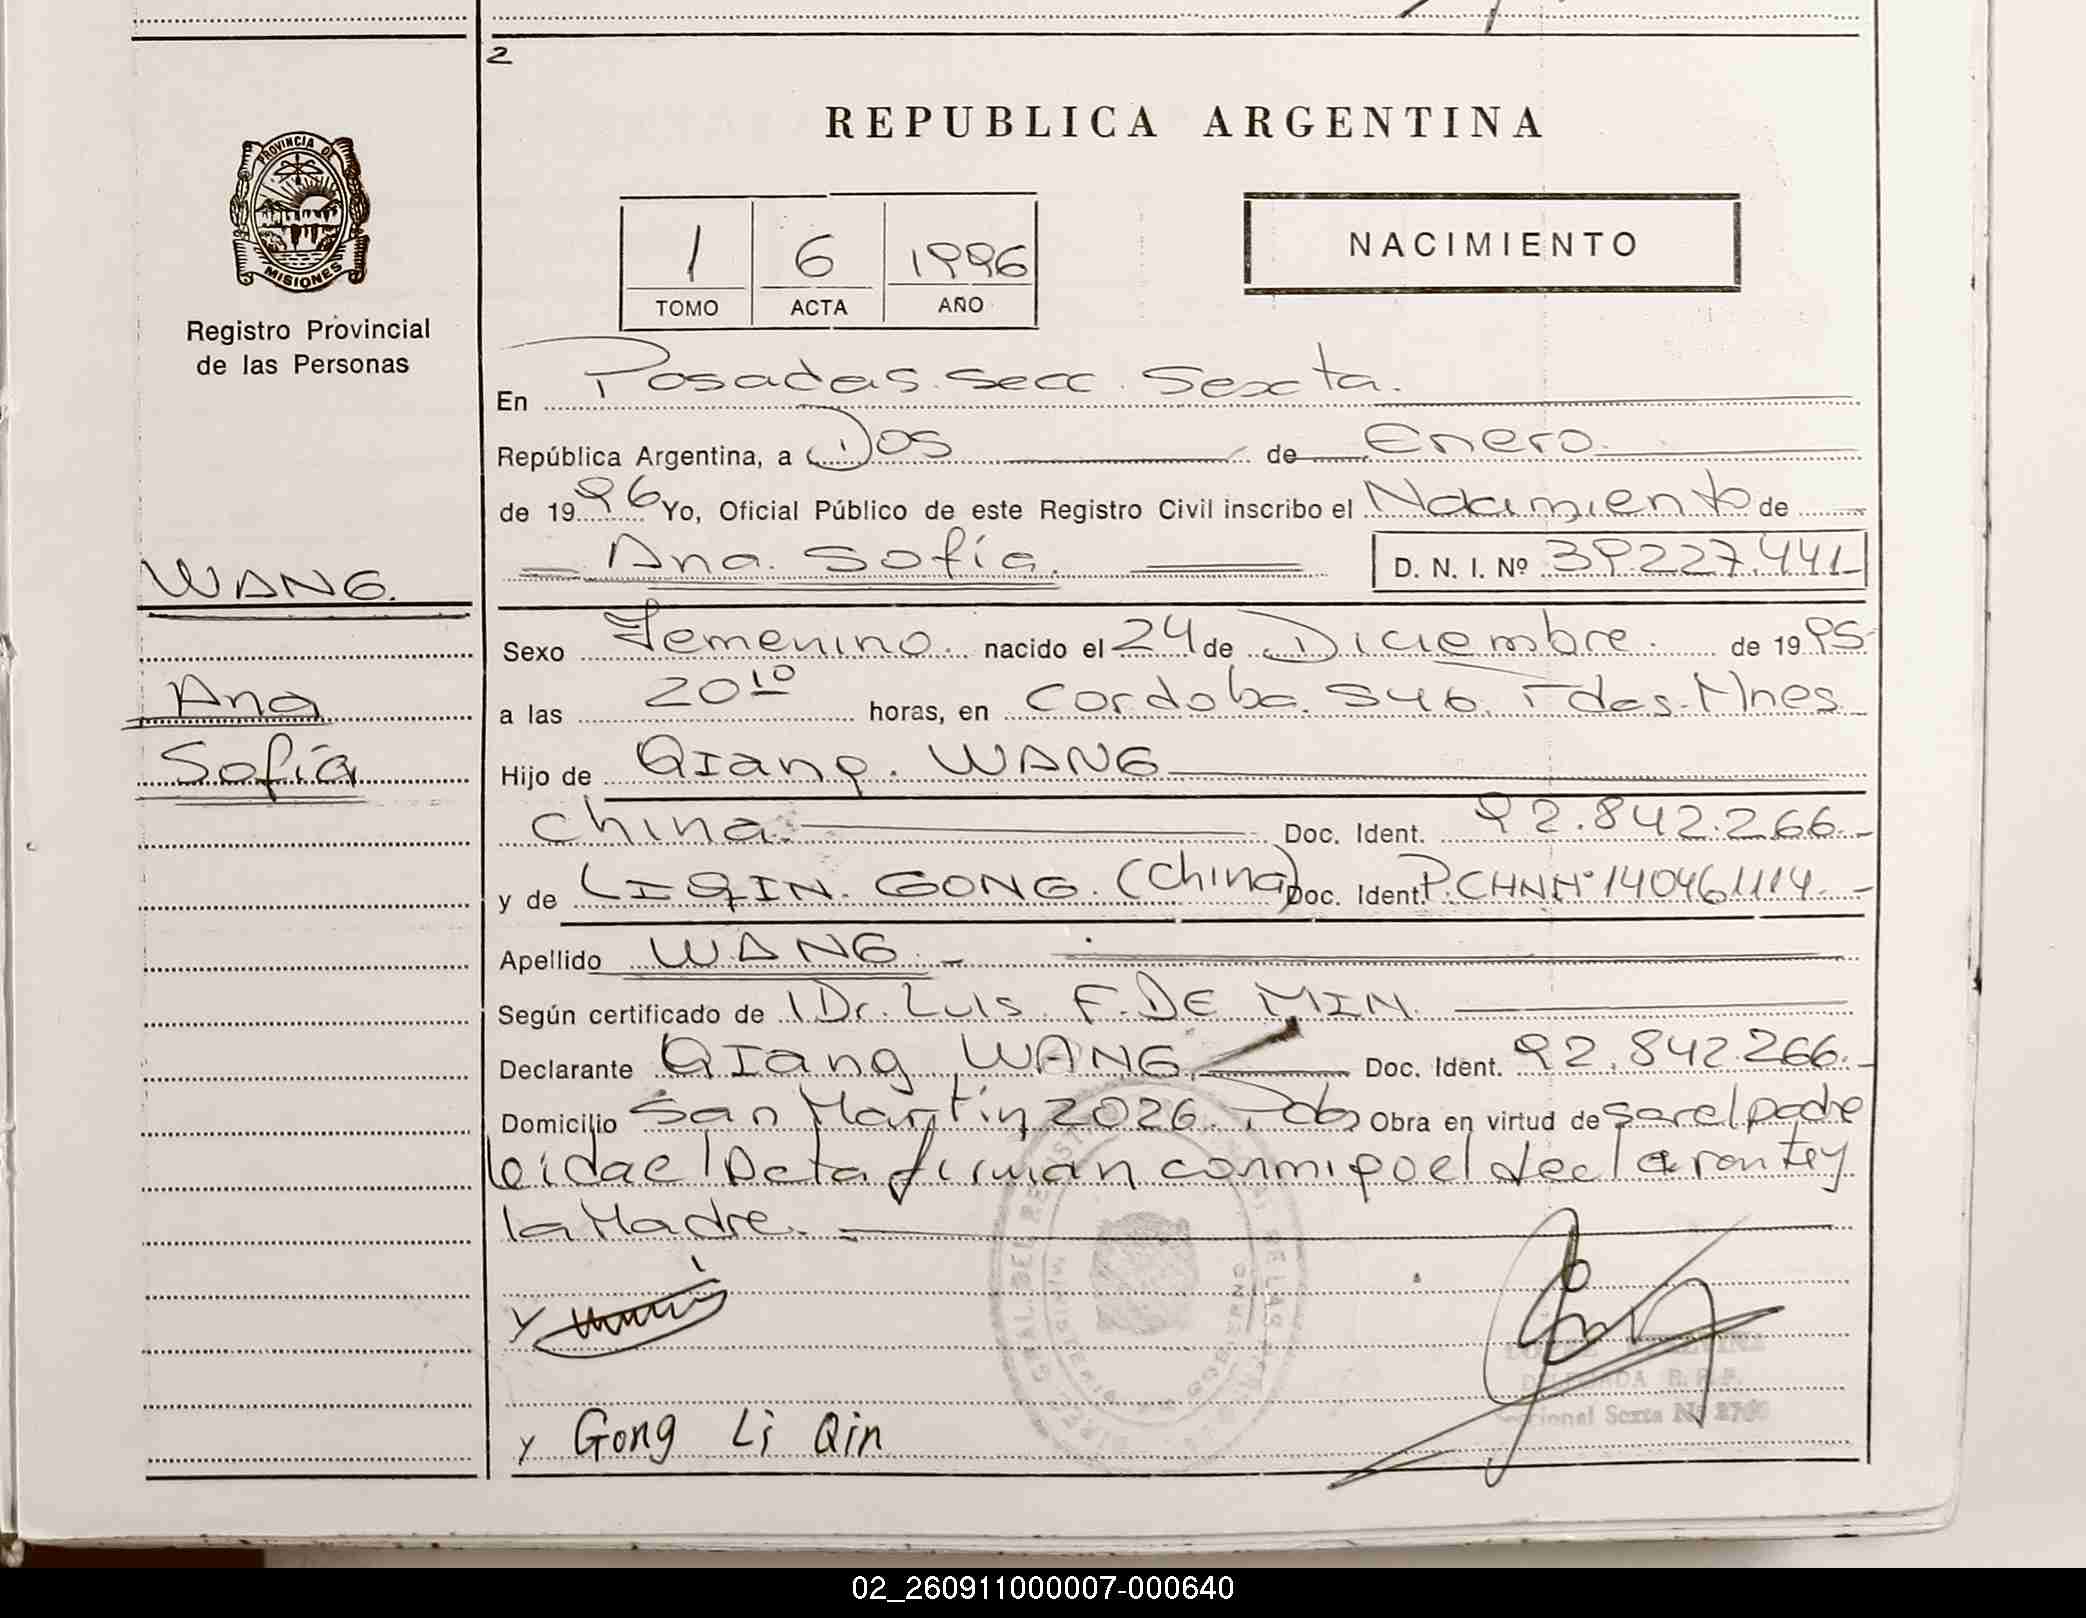 2
REPUBLICA ARGENTINA
PROVINCIA DE
MISIONES
Registro Provincial
de las Personas
1 6 1996
TOMO ACTA AÑO
NACIMIENTO
En Posadas. Secc. Sexta.
República Argentina, a Dos de Enero
de 1996 Yo, Oficial Público de este Registro Civil inscribo el Nacimiento de
Ana. Sofía. D. N. I. Nº 39.227.441
WANG.
Ana
Sofía
Sexo Femenino. nacido el 24 de Diciembre. de 1995
a las 20 10 horas, en Cordoba. 546. Pdas. Mnes
Hijo de QIang. WANG
China. Doc. Ident. 92.842.266.
y de LIQIN. GONG. (China) Doc. Ident. P.CHNNº140461114.
Apellido WANG.
Según certificado de Dr. Luis F. DE MIN.
Declarante QIang WANG. Doc. Ident. 92.842.266.
Domicilio San Martín 2026. Pdas Obra en virtud de ser el padre
leida el Acta firman conmigo el declarante y
la Madre.
y
y Gong Li Qin
DELEGADA R. P. P.
Seccional Sexta Nº
02_260911000007-000640